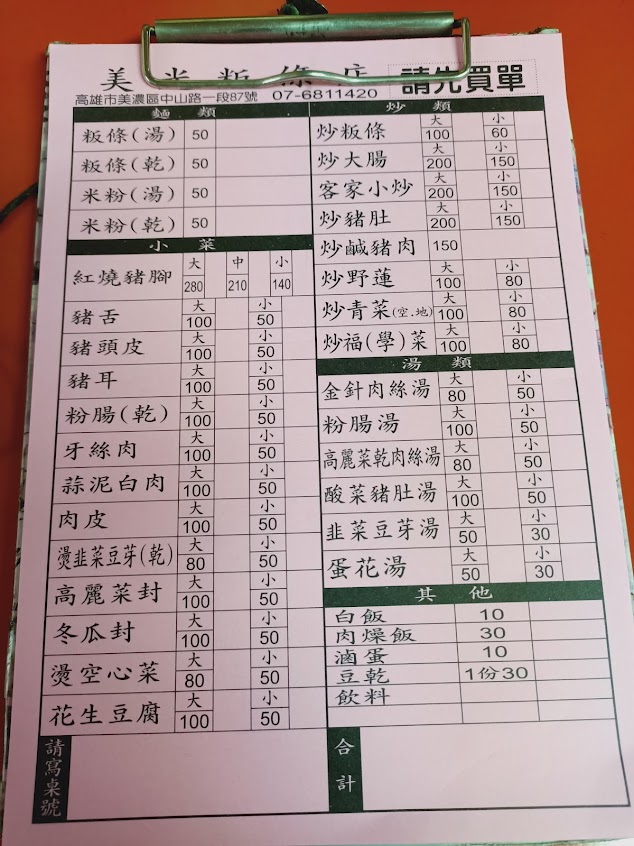 美光粄條店 請先買單
高雄市美濃區中山路一段87號 07-6811420
麵類
粄條(湯) 50
粄條(乾) 50
米粉(湯) 50
米粉(乾) 50
小菜
紅燒豬腳 大 280 中 210 小 140
豬舌 大 100 小 50
豬頭皮 大 100 小 50
豬耳 大 100 小 50
粉腸(乾) 大 100 小 50
牙絲肉 大 100 小 50
蒜泥白肉 大 100 小 50
肉皮 大 100 小 50
燙韭菜豆芽(乾) 大 80 小 50
高麗菜封 大 100 小 50
冬瓜封 大 100 小 50
燙空心菜 大 80 小 50
花生豆腐 大 100 小 50
請寫桌號
炒類
炒粄條 大 100 小 60
炒大腸 大 200 小 150
客家小炒 大 200 小 150
炒豬肚 大 200 小 150
炒鹹豬肉 150
炒野蓮 大 100 小 80
炒青菜(空.地) 大 100 小 80
炒福(學)菜 大 100 小 80
湯類
金針肉絲湯 大 80 小 50
粉腸湯 大 100 小 50
高麗菜乾肉絲湯 大 80 小 50
酸菜豬肚湯 大 100 小 50
韭菜豆芽湯 大 50 小 30
蛋花湯 大 50 小 30
其他
白飯 10
肉燥飯 30
滷蛋 10
豆乾 1份30
飲料
合計